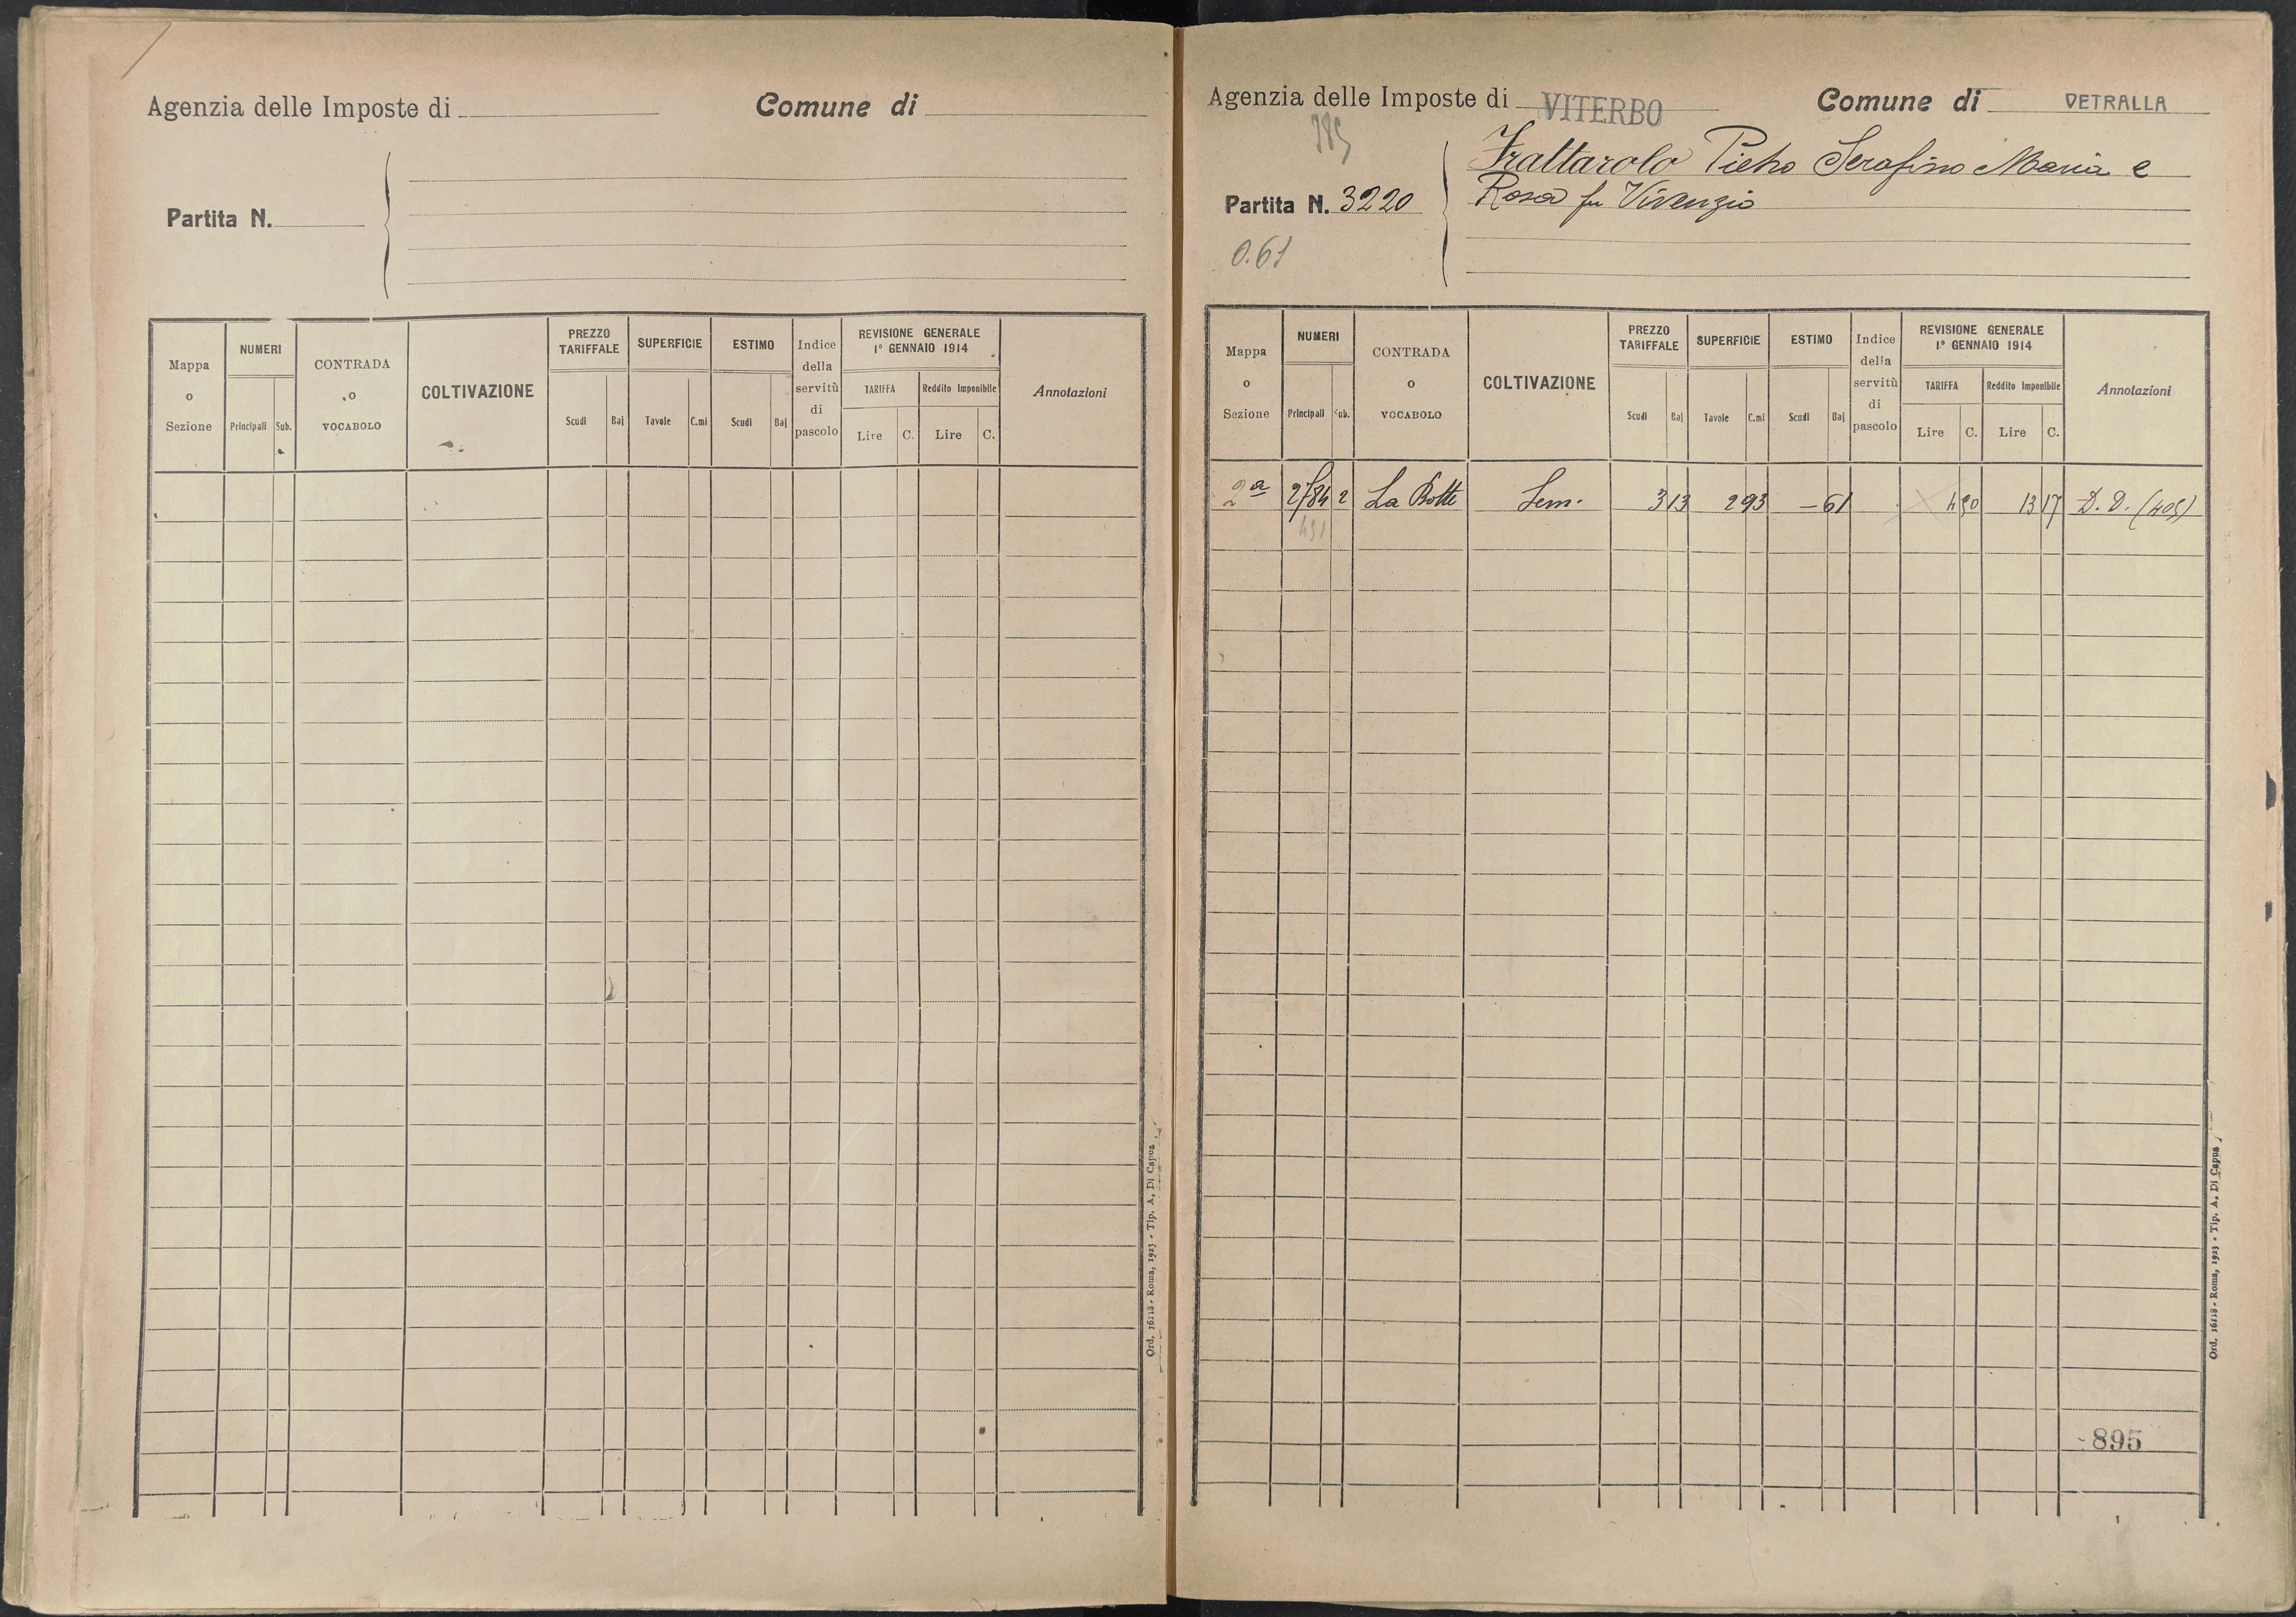 Agenzia delle Imposte di
Comune di
Partita N.
Mappa o Sezione
NUMERI
Principali Sub.
CONTRADA o VOCABOLO
COLTIVAZIONE
PREZZO TARIFFALE
Scudi Baj
SUPERFICIE
Tavole C.mi
ESTIMO
Scudi Baj
Indice della servitù di pascolo
REVISIONE GENERALE
1° GENNAIO 1914
TARIFFA
Lire C.
Reddito Imponibile
Lire C.
Annotazioni
Ord. 16118 - Roma, 1923 - Tip. A. Di Capua
Agenzia delle Imposte di VITERBO
Comune di VETRALLA
785
Frattarolo Pietro Serafino Maria e
Rosa fu Vivenzio
Partita N. 3220
0.61
Mappa o Sezione
NUMERI
Principali Sub.
CONTRADA o VOCABOLO
COLTIVAZIONE
PREZZO TARIFFALE
Scudi Baj
SUPERFICIE
Tavole C.mi
ESTIMO
Scudi Baj
Indice della servitù di pascolo
REVISIONE GENERALE
1° GENNAIO 1914
TARIFFA
Lire C.
Reddito Imponibile
Lire C.
Annotazioni
2ª 2784 2 La Botte Sem. 3 13 2 93 - 61 4 50 13 17 D. D. (405)
451
895
Ord. 16118 - Roma, 1923 - Tip. A. Di Capua